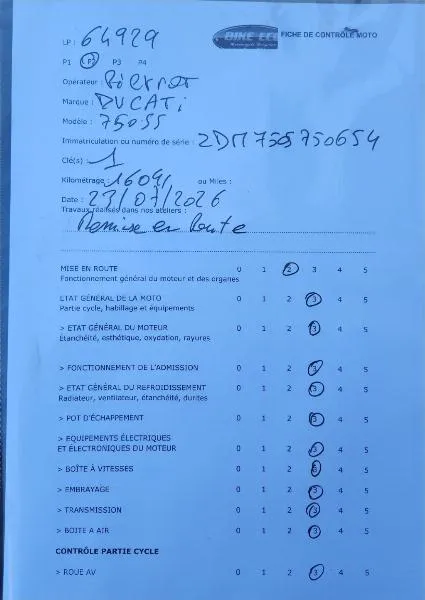 LP : 64929
BIKE ECO FICHE DE CONTRÔLE MOTO
P1 P2 P3 P4
Opérateur : Pierrot
Marque : DUCATi
Modèle : 750SS
Immatriculation ou numéro de série : ZDM750S750654
Clé(s) : 1
Kilométrage : 16091 ou Miles :
Date : 23/07/2026
Travaux réalisés dans nos ateliers :
Remise en Route
MISE EN ROUTE 0 1 2 3 4 5
Fonctionnement général du moteur et des organes
ETAT GÉNÉRAL DE LA MOTO 0 1 2 3 4 5
Partie cycle, habillage et équipements
> ETAT GÉNÉRAL DU MOTEUR 0 1 2 3 4 5
Etanchéité, esthétique, oxydation, rayures
> FONCTIONNEMENT DE L'ADMISSION 0 1 2 3 4 5
> ETAT GÉNÉRAL DU REFROIDISSEMENT 0 1 2 3 4 5
Radiateur, ventilateur, étanchéité, durites
> POT D'ÉCHAPPEMENT 0 1 2 3 4 5
> EQUIPEMENTS ÉLECTRIQUES
ET ÉLECTRONIQUES DU MOTEUR 0 1 2 3 4 5
> BOÎTE À VITESSES 0 1 2 3 4 5
> EMBRAYAGE 0 1 2 3 4 5
> TRANSMISSION 0 1 2 3 4 5
> BOITE A AIR 0 1 2 3 4 5
CONTRÔLE PARTIE CYCLE
> ROUE AV 0 1 2 3 4 5